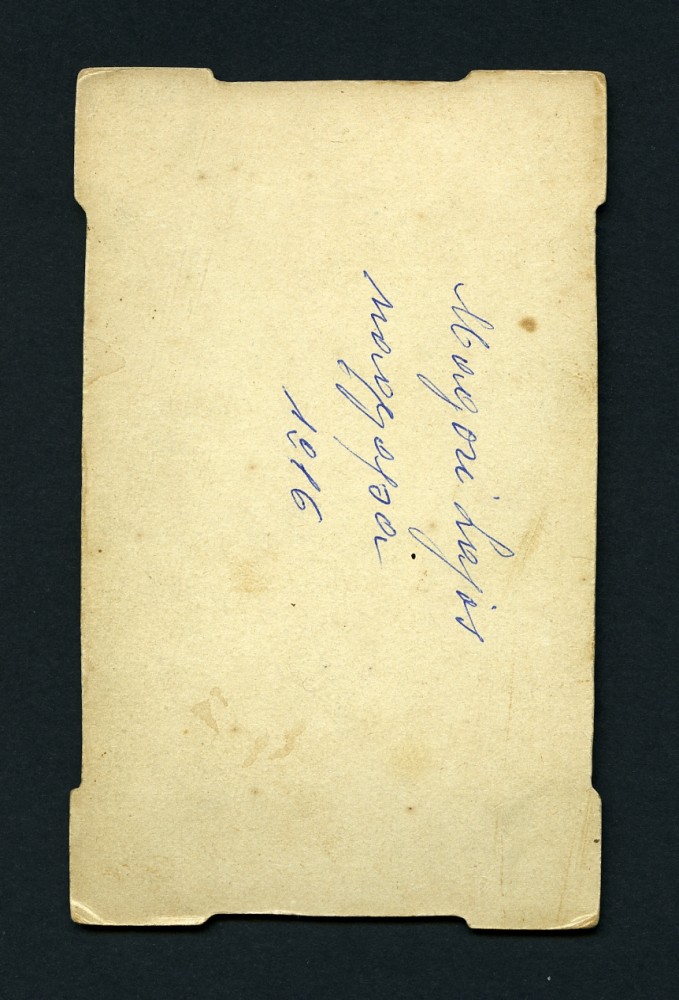 Magori Lajos
nagyapa
1916